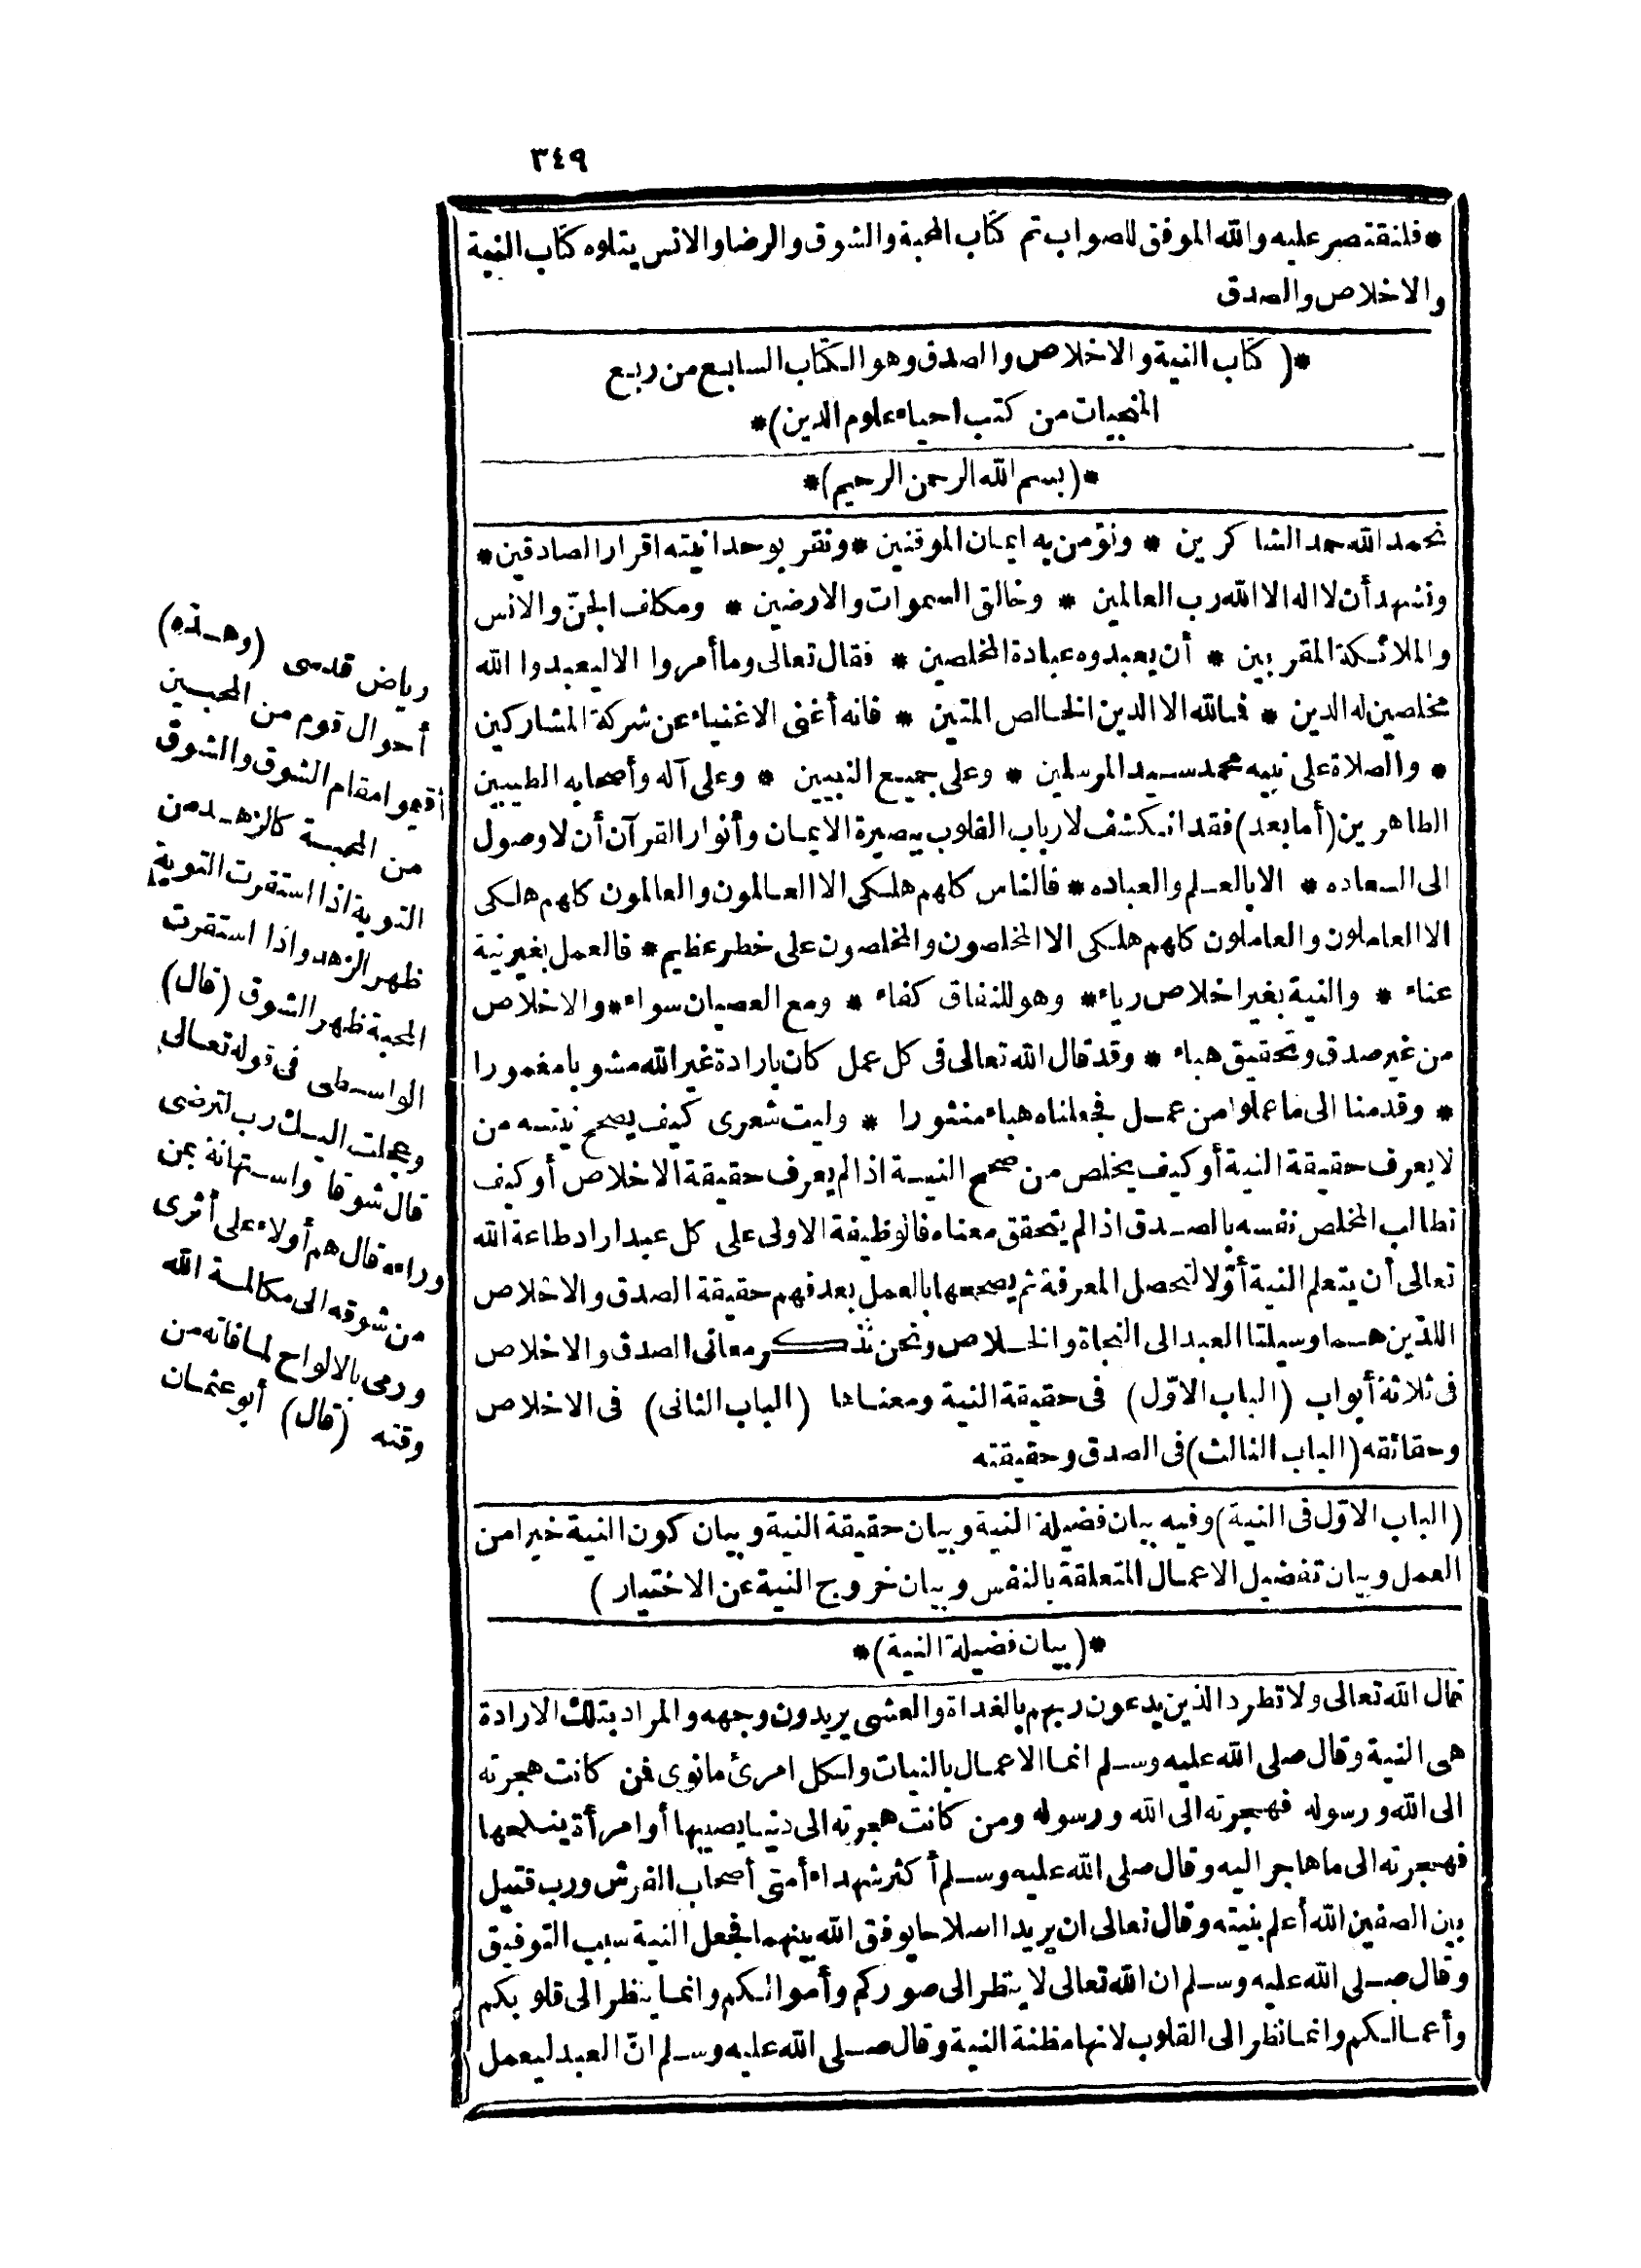 ٣٤٩
* فلنقتصر عليه والله الموفق للصواب تم كتاب المحبة والشوق والرضا والانس يتلوه كتاب النية
والاخلاص والصدق
*( كتاب النية والاخلاص والصدق وهو الكتاب السابع من ربع
المنجيات من كتب احياء علوم الدين)*
*(بسم الله الرحمن الرحيم)*
نحمد الله حمد الشاكرين * ونؤمن به ايمان الموقنين * ونقر بوحدانيته اقرار الصادقين *
ونشهد أن لا اله الا الله رب العالمين * وخالق السموات والارضين * ومكلف الجنّ والانس
والملائكة المقربين * أن يعبدوه عبادة المخلصين * فقال تعالى وما أمروا الا ليعبدوا الله
مخلصين له الدين * فمالله الا الدين الخالص المتين * فانه أغنى الاغنياء عن شركة المشاركين
* والصلاة على نبيه محمد سيد المرسلين * وعلى جميع النبيين * وعلى آله وأصحابه الطيبين
الطاهرين (أما بعد) فقد انكشف لارباب القلوب ببصيرة الايمان وأنوار القرآن أن لا وصول
الى السعاده * الا بالعلم والعباده * فالناس كلهم هلكى الا العالمون والعالمون كلهم هلكى
الا العاملون والعاملون كلهم هلكى الا المخلصون والمخلصون على خطر عظيم * فالعمل بغير نية
عناء * والنية بغير اخلاص رياء * وهو للنفاق كفاء * ومع العصيان سواء * والاخلاص
من غير صدق وتحقيق هباء * وقد قال الله تعالى فى كل عمل كان بارادة غير الله مشوبا مغمورا
* وقدمنا الى ما عملوا من عمل فجعلناه هباء منثورا * وليت شعرى كيف يصحح نيته من
لا يعرف حقيقة النية أو كيف يخلص من صحح النية اذا لم يعرف حقيقة الاخلاص أو كيف
تطالب المخلص نفسه بالصدق اذا لم يتحقق معناه فالوظيفة الاولى على كل عبد اراد طاعة الله
تعالى أن يتعلم النية أوّلا لتحصل المعرفة ثم يصححها بالعمل بعد فهم حقيقة الصدق والاخلاص
اللذين هما وسيلتا العبد الى النجاة والخلاص ونحن نذكر معانى الصدق والاخلاص
فى ثلاثة أبواب (الباب الاوّل) فى حقيقة النية ومعناها (الباب الثانى) فى الاخلاص
وحقائقه (الباب الثالث) فى الصدق وحقيقته
(الباب الاوّل فى النية) وفيه بيان فضيلة النية وبيان حقيقة النية وبيان كون النية خيرا من
العمل وبيان تفضيل الاعمال المتعلقة بالنفس وبيان خروج النية عن الاختيار )
*(بيان فضيلة النية)*
قال الله تعالى ولا تطرد الذين يدعون ربهم بالغداة والعشى يريدون وجهه والمراد بتلك الارادة
هى النية وقال صلى الله عليه وسلم انما الاعمال بالنيات ولكل امرئ ما نوى فمن كانت هجرته
الى الله ورسوله فهجرته الى الله ورسوله ومن كانت هجرته الى دنيا يصيبها أو امرأة ينكحها
فهجرته الى ما هاجر اليه وقال صلى الله عليه وسلم أكثر شهداء أمتى أصحاب الفرش ورب قتيل
بين الصفين الله أعلم بنيته وقال تعالى ان يريدا اصلاحا يوفق الله بينهما فجعل النية سبب التوفيق
وقال صلى الله عليه وسلم ان الله تعالى لا ينظر الى صوركم وأموالكم وانما ينظر الى قلوبكم
وأعمالكم وانما نظر الى القلوب لانها مظنة النية وقال صلى الله عليه وسلم انّ العبد ليعمل
رياض قدسى (وهذه)
أحوال قوم من المحبين
أقيموا مقام الشوق والشوق
من المحبة كالزهد من
التوبة اذا استقرت التوبة
ظهر الزهد واذا استقرت
المحبة ظهر الشوق (قال)
الواسطى فى قوله تعالى
وعجلت اليك رب لترضى
قال شوقا واستهانة بمن
وراءه قال هم أولاء على أثرى
من شوقه الى مكالمة الله
ورمى بالالواح لما فاته من
وقته (قال) أبو عثمان